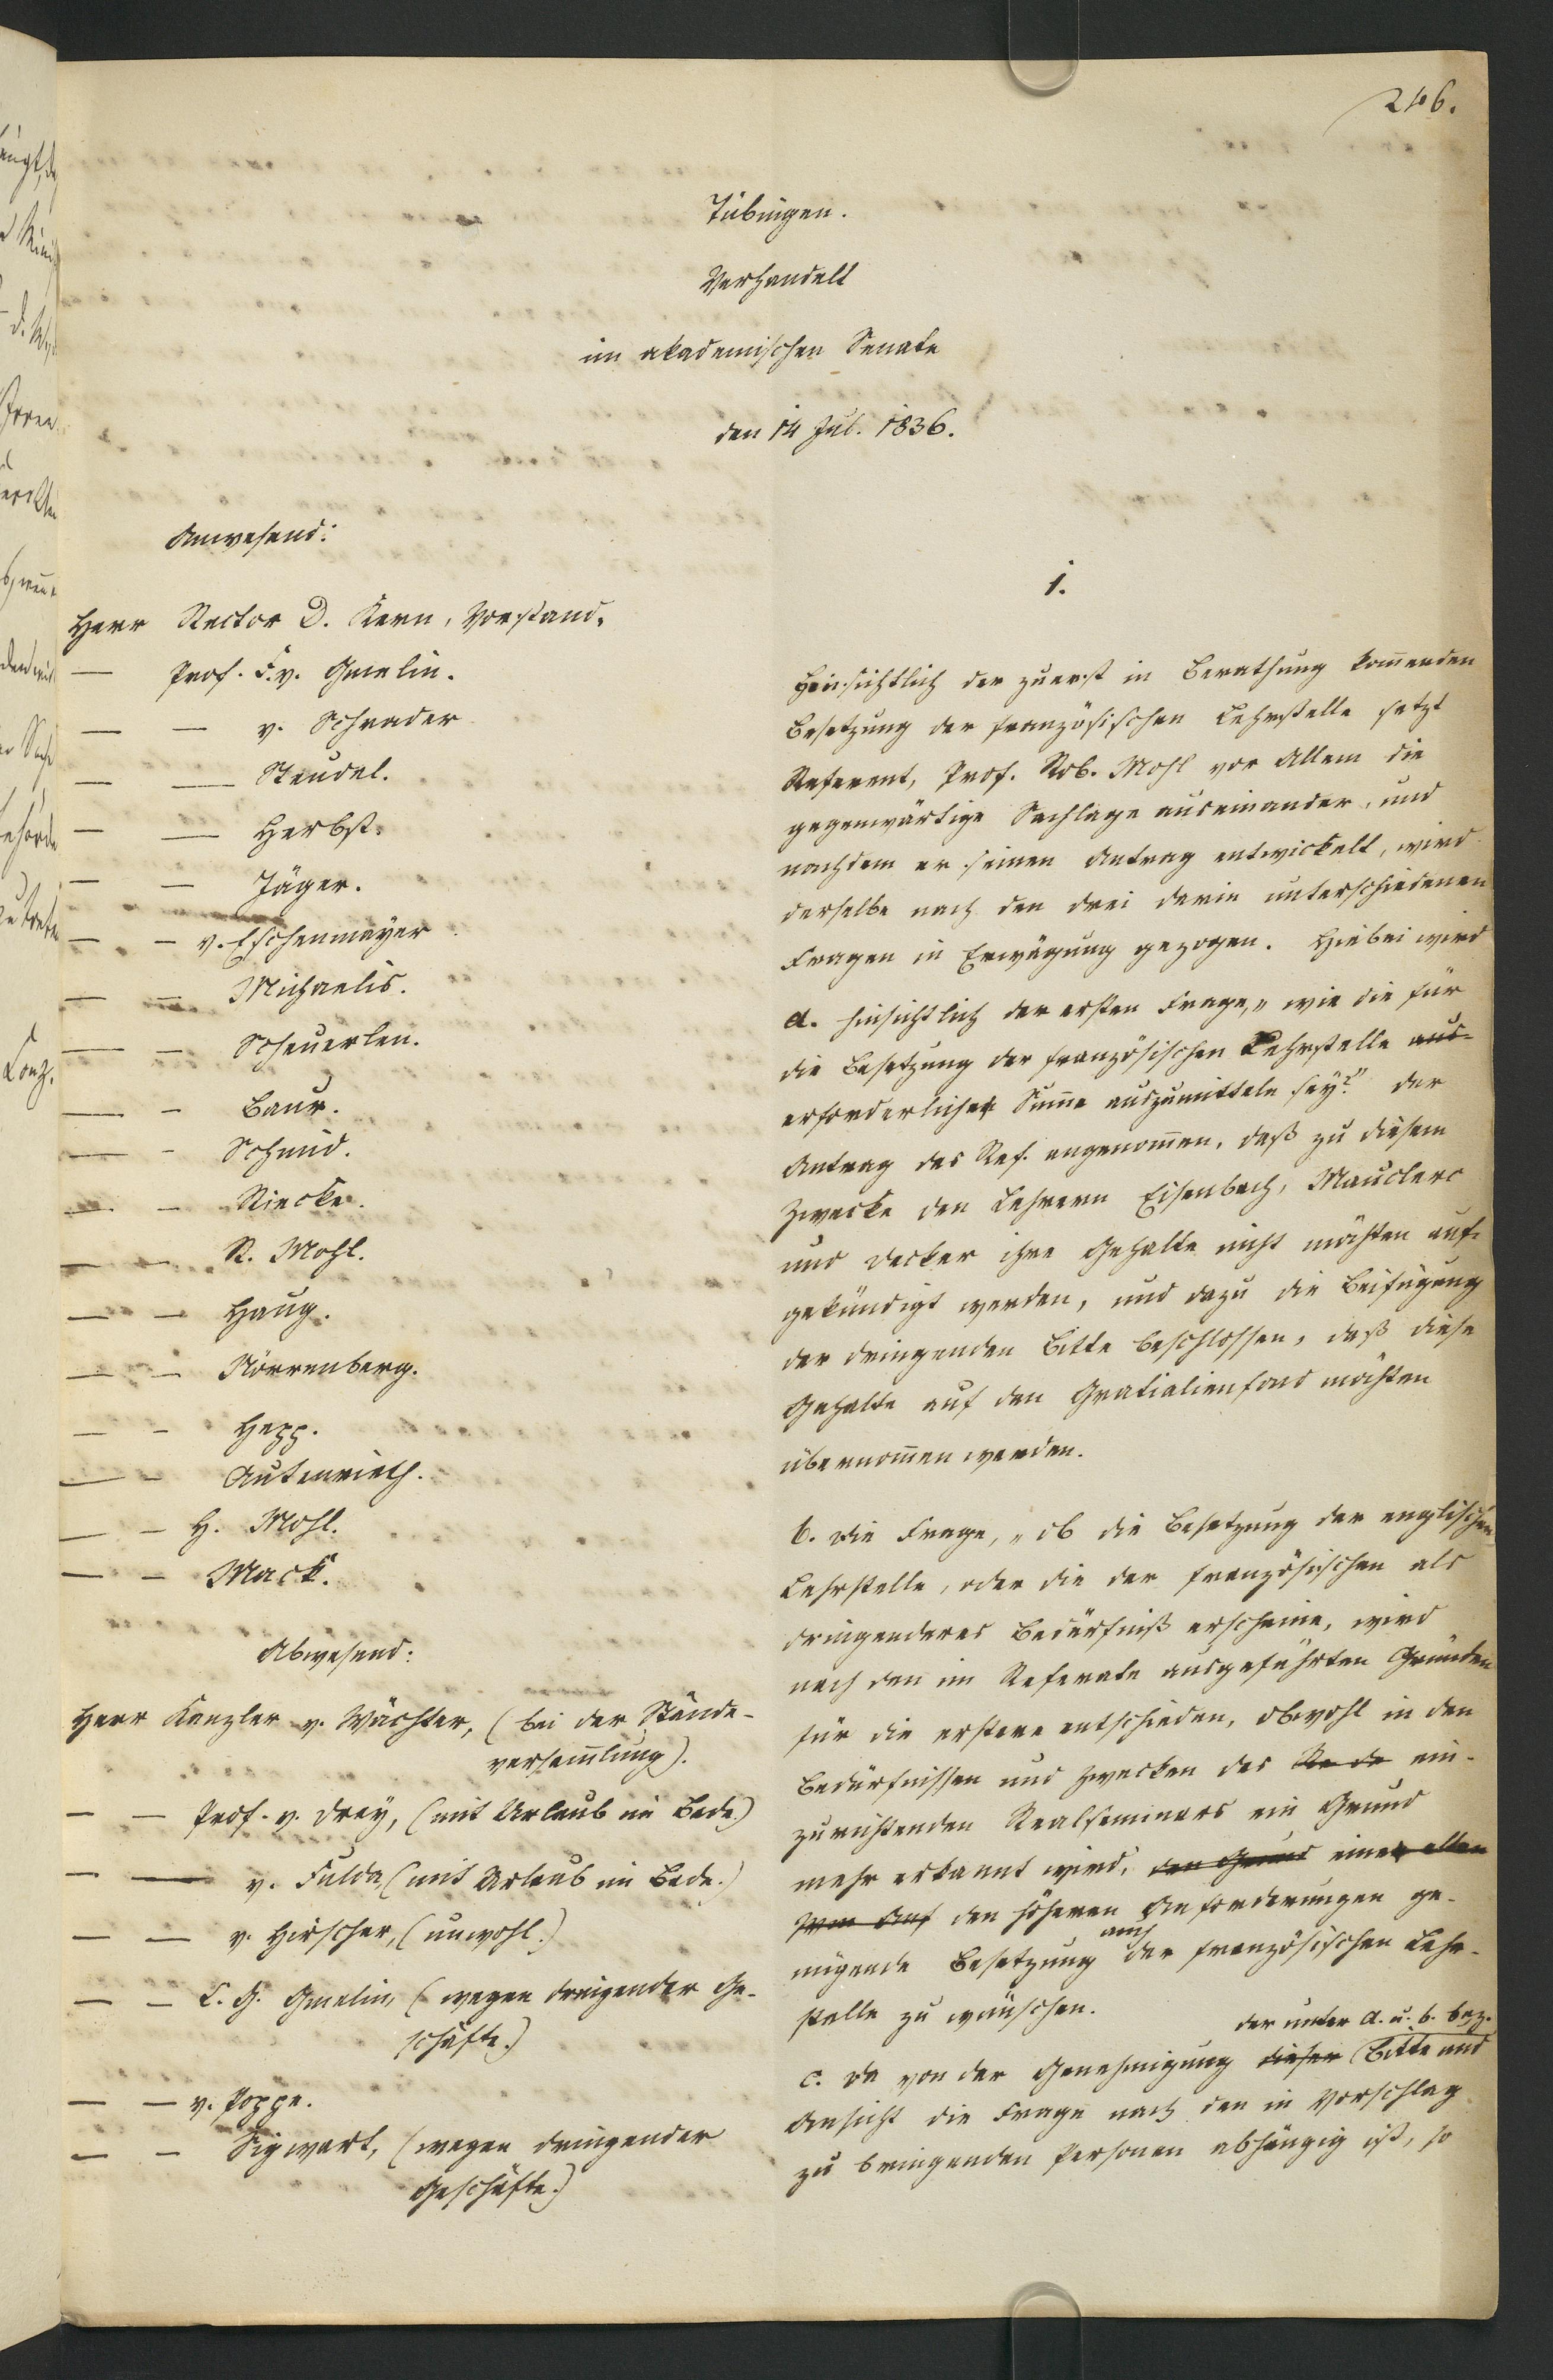 246.
Tübingen.
Verhandelt
im akademischen Senate
den 14 Jul. 1836.
Anwesend:
Herr Rector D. Kern, Vorstand.
— Prof. F. v. Gmelin.
— — v. Schrader
— — Steudel.
— — Herbst.
— — Jäger.
— — v. Eschenmayer
— — Michaelis.
— — Scheuerlen.
— — Baur.
— — Schmid.
— — Riecke.
— — R. Mohl.
— — Haug.
— — Nörrenberg.
— — Hepp.
— — Autenrieth.
— — H. Mohl.
— — Mack.
Abwesend:
Herr Kanzler v. Wächter, (bei der Stände-
versam̅lung).
— — Prof. v. Drey, (mit Urlaub im Bade.)
— — v. Fulda, (mit Urlaub im Bade.)
— — v. Hirscher, (unwohl.)
— — C. G. Gmelin, (wegen dringender Ge-
schäfte.)
— — v. Poppe.
— — Sigwart, (wegen dringender
Geschäfte.)
1.
Hinsichtlich der zuerst in Berathung kom̅enden
Besetzung der französischen Lehrstelle setzt
Referent, Prof. Rob. Mohl vor Allem die
gegenwärtige Sachlage auseinander, und
nachdem er seinen Antrag entwickelt, wird
derselbe nach den drei darin unterschiedenen
Fragen in Erwägung gezogen. Hiebei wird
a. hinsichtlich der ersten Frage, „wie die für
die Besetzung der französischen Lehrstelle aus-
erforderliche Sum̅e auszumitteln sey?" der
Antrag des Ref. angenom̅en, daß zu diesem
Zwecke den Lehrern Eisenbach, Mauclerc
und Decker ihre Gehalte nicht möchten auf-
gekündigt werden, und dazu die Beifügung
der dringenden Bitte beschlossen, daß diese
Gehalte auf den Gratialienfond möchten
übernom̅en werden.
b. die Frage, „ob die Besetzung der englischen
Lehrstelle, oder die der französischen als
dringenderes Bedürfniß erscheine, wird
nach den im Referate ausgeführten Gründen
für die erstere entschieden, obwohl in den
Bedürfnissen und Zwecken des Re de ein-
zurichtenden Realseminars ein Grund
mehr erkannt wird, den Grund eine allen
den höheren Anforderungen ge-
nügende Besetzung auch der französischen Lehr-
stelle zu wünschen.
der unter a. u. b. bez.
c. Da von der Genehmigung dieser Bitte und
Ansicht die Frage nach den in Vorschlag
zu bringenden Personen abhängig ist, so